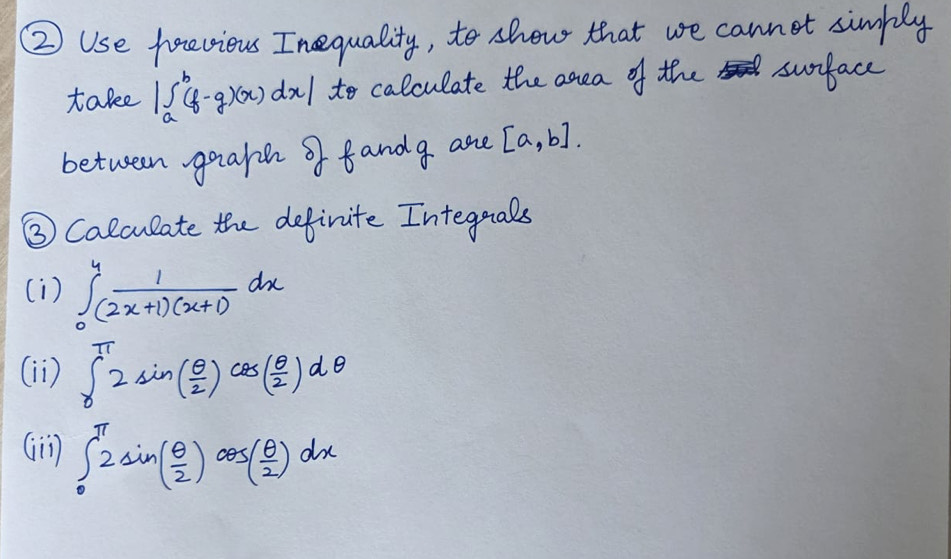 ② Use previous Inequality, to show that we cannot simply
take |∫ₐᵇ(f-g)(x) dx| to calculate the area of the surface
between graph of f and g are [a,b].
③ Calculate the definite Integrals
(i) ∫₀⁴ 1/((2x+1)(x+1)) dx
(ii) ∫₀^π 2 sin(θ/2) cos(θ/2) dθ
(iii) ∫₀^π 2 sin(θ/2) cos(θ/2) dx